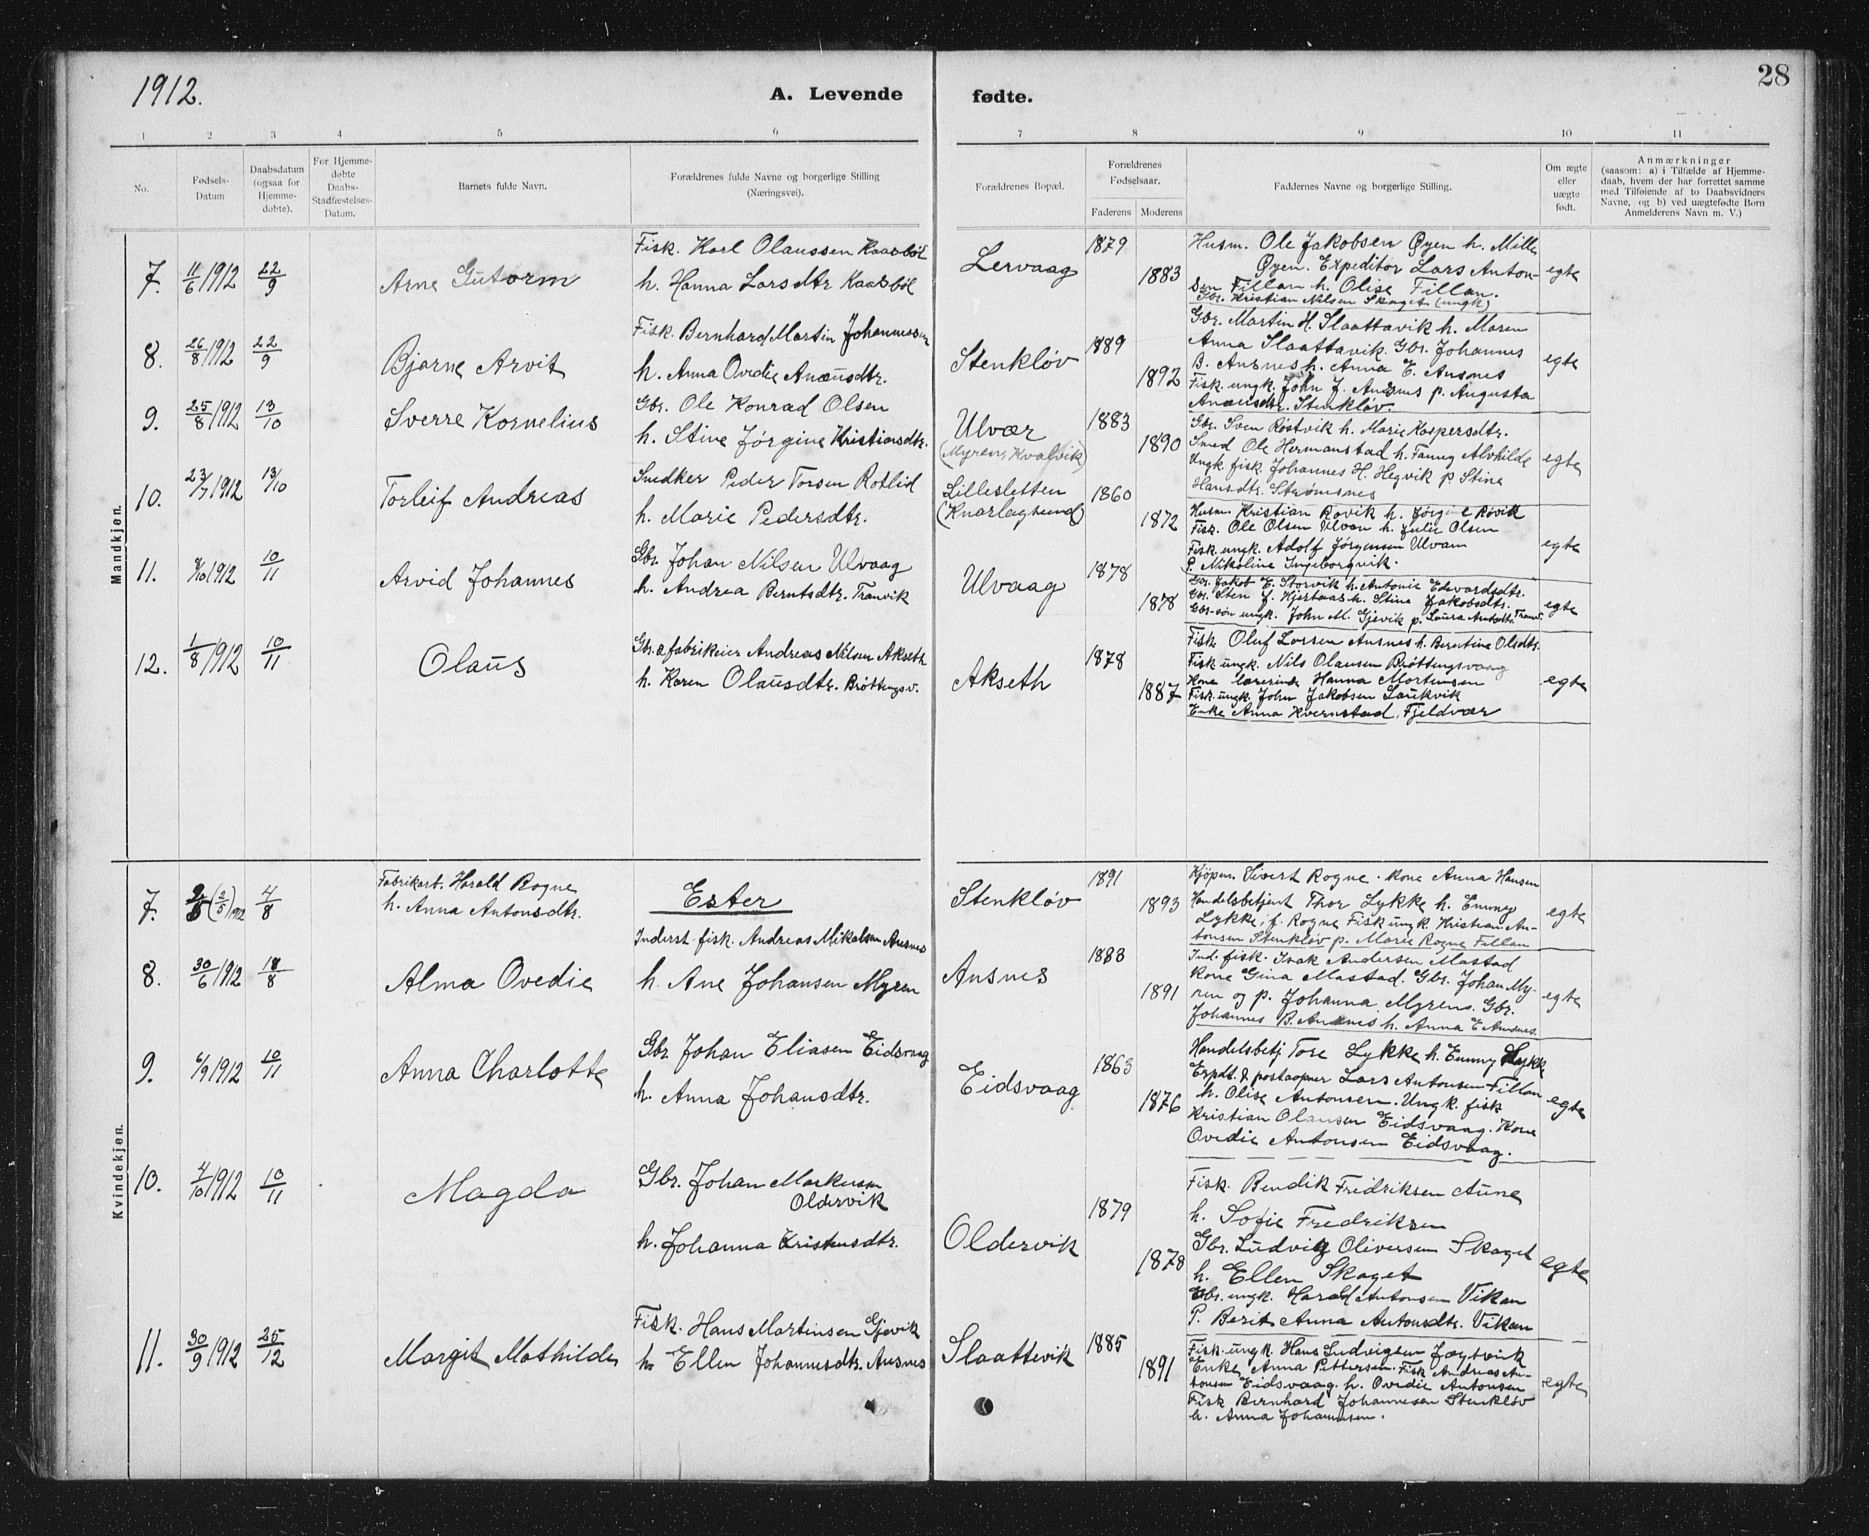 1912.
A. Levende fødte.
28
1 2 3 4 5 6 7 8 9 10 11
No.
Fødsels-Datum
Daabsdatum (ogsaa for Hjemme-døbte).
For Hjemme-døbte Daabs-Stadfæstelses-Datum.
Barnets fulde Navn.
Forældrenes fulde Navne og borgerlige Stilling (Næringsvei).
Forældrenes Bopæl.
Forældrenes Fødselsaar.
Faderens Moderens
Faddernes Navne og borgerlige Stilling.
Om ægte eller uægte født.
Anmærkninger
(saasom: a) i Tilfælde af Hjemme-
daab, hvem der har forrettet samme
med Tilføiende af to Daabsvidners
Navne, og b) ved uægtefødte Børn
Anmelderens Navn m. V.)
Mandkjøn.
7. 11/6 1912 22/9
Arne Gutorm
Fisk. Karl Olaussen Kaasbøl
h. Hanna Larsdtr Kaasbøl
Lervaag
1879
1883
Husm. Ole Jakobsen Øyen h. Mille
Øyen. Expeditør Lars Anton-
sen Fillan h. Olise Fillan.
Gbr. Kristian Nilsen Skaget (ungk)
egte
8. 26/8 1912 22/9
Bjarne Arvit
Fisk. Bernhard Martin Johannessen
h. Anna Ovedie Anæusdtr.
Stenkløv
1889
1892
Gbr. Martin H. Slaattavik h. Maren
Anna Slaattavik. Gbr. Johannes
B. Ansnes h. Anna E. Ansnes
Fisk. ungk. John J. Ansnes p. Augusta
Anæusdtr. Stenkløv.
egte
9. 25/8 1912 13/10
Sverre Kornelius
Gbr. Ole Konrad Olsen
h. Stine Jørgine Kristiansdtr.
Ulvær
(Myren, Kvalvik)
1883
1890
Gbr. Sven Røstvik h. Marie Kaspersdtr.
Smed Ole Hermanstad h. Fanny Alvhilde
Ungk. fisk. Johannes H. Hegvik p. Stine
Hansdtr. Strømsnes
egte
10. 23/7 1912 13/10
Torleif Andreas
Snedker Peder Torsen Rotlid
h. Marie Pedersdtr.
Lillesletten
(Knarlagsund)
1860
1872
Husm. Kristian Røvik h. Jørgine Røvik
Fisk. Ole Olsen Ulvan h. Julie Olsen
Fisk. ungk. Adolf Jørgensen Ulvan
P. Nikoline Ingeborgvik.
egte
11. /10 1912 10/11
Arvid Johannes
Gbr. Johan Nilsen Ulvaag
h. Andrea Berntsdtr. Tranvik
Ulvaag
1878
1878
Gbr. Jakob E. Storvik h. Antonie Edvardsdtr.
Gbr. Sten J. Hjertaas h. Stina Jakobsdtr.
Gbr.søn ungk. John M. Gjevik p. Laura Antdtr. Tranv.
egte
12. 1/8 1912 10/11
Olaus
Gbr. & fabrikeier Andreas Nilsen Akseth
h. Karen Olausdtr. Brøttingsv.
Akseth
1878
1887
Fisk. Oluf Larsen Ansnes h. Berntine Olsdtr.
Fisk ungk. Nils Olausen Brøttingsvaag
Kone lærerinde Hanna Mortensen
Fisk. ungk. John Jakobsen Laukvik
Enke Anna Kvernstad, Fjeldvær
egte
Kvindekjøn.
7. (2/5) 1912 4/8
Fabrikarb. Harald Rogne
h. Anna Antonsdtr.
Ester
Stenkløv
1891
1893
Kjøpm. Sivert Rogne. Kone Anna Hansen
Handelsbetjent Thor Lykke h. Emmy
Lykke, f. Rogne Fisk ungk. Kristian An-
tonsen Stenkløv p. Marie Rogne Fillan
egte
8. 30/6 1912 18/8
Alma Ovedie
Inderst fisk. Andreas Mikalsen Ansnes
h. Ane Johansen Myren
Ansnes
1883
1891
Ind. fisk. Isak Andersen Mastad
Kone Gina Mastad. Gbr. Johan My-
ren og p. Johanna Myren. Gbr.
Johannes B. Ansnes h. Anna E Ansnes.
egte
9. 6/9 1912 10/11
Anna Charlotte
Gbr. Johan Eliasen Eidsvaag
h. Anna Johansdtr.
Eidsvaag
1863
1876
Handelsbetj Tore Lykke h. Emmy Lykke
Expdt. & postaapner Lars Antonsen Fillan
h. Olise Antonsen. Ungk. fisk
Kristian Olausen Eidsvaag. Kone
Ovedie Antonsen Eidsvaag.
egte
10. 4/10 1912 10/11
Magda
Gbr. Johan Markusen
Oldervik
h. Johanna Kristensdtr.
Oldervik
1879
1878
Fisk. Bendik Fredriksen Aune
h. Sofie Fredriksen
Gbr. Ludvig Oliversen Skaget
h. Ellen Skaget
Gbr. ungk. Harald Antonsen Vikan
P. Berit Anna Antonsdtr. Vikan
egte
11. 30/9 1912 25/12
Margit Mathilde
Fisk. Hans Martinsen Gjevik
h. Ellen Johannesdtr. Ansnes
Slaattevik
1885
1891
Fisk. ungk. Hans Ludvigsen
Enke Anna Pettersen. Fisk Andreas An-
tonsen Eidsvaag. h. Ovedie Antonsen
Fisk Bernhard Johannesen Stenkløv
h. Anna Johannesen.
egte